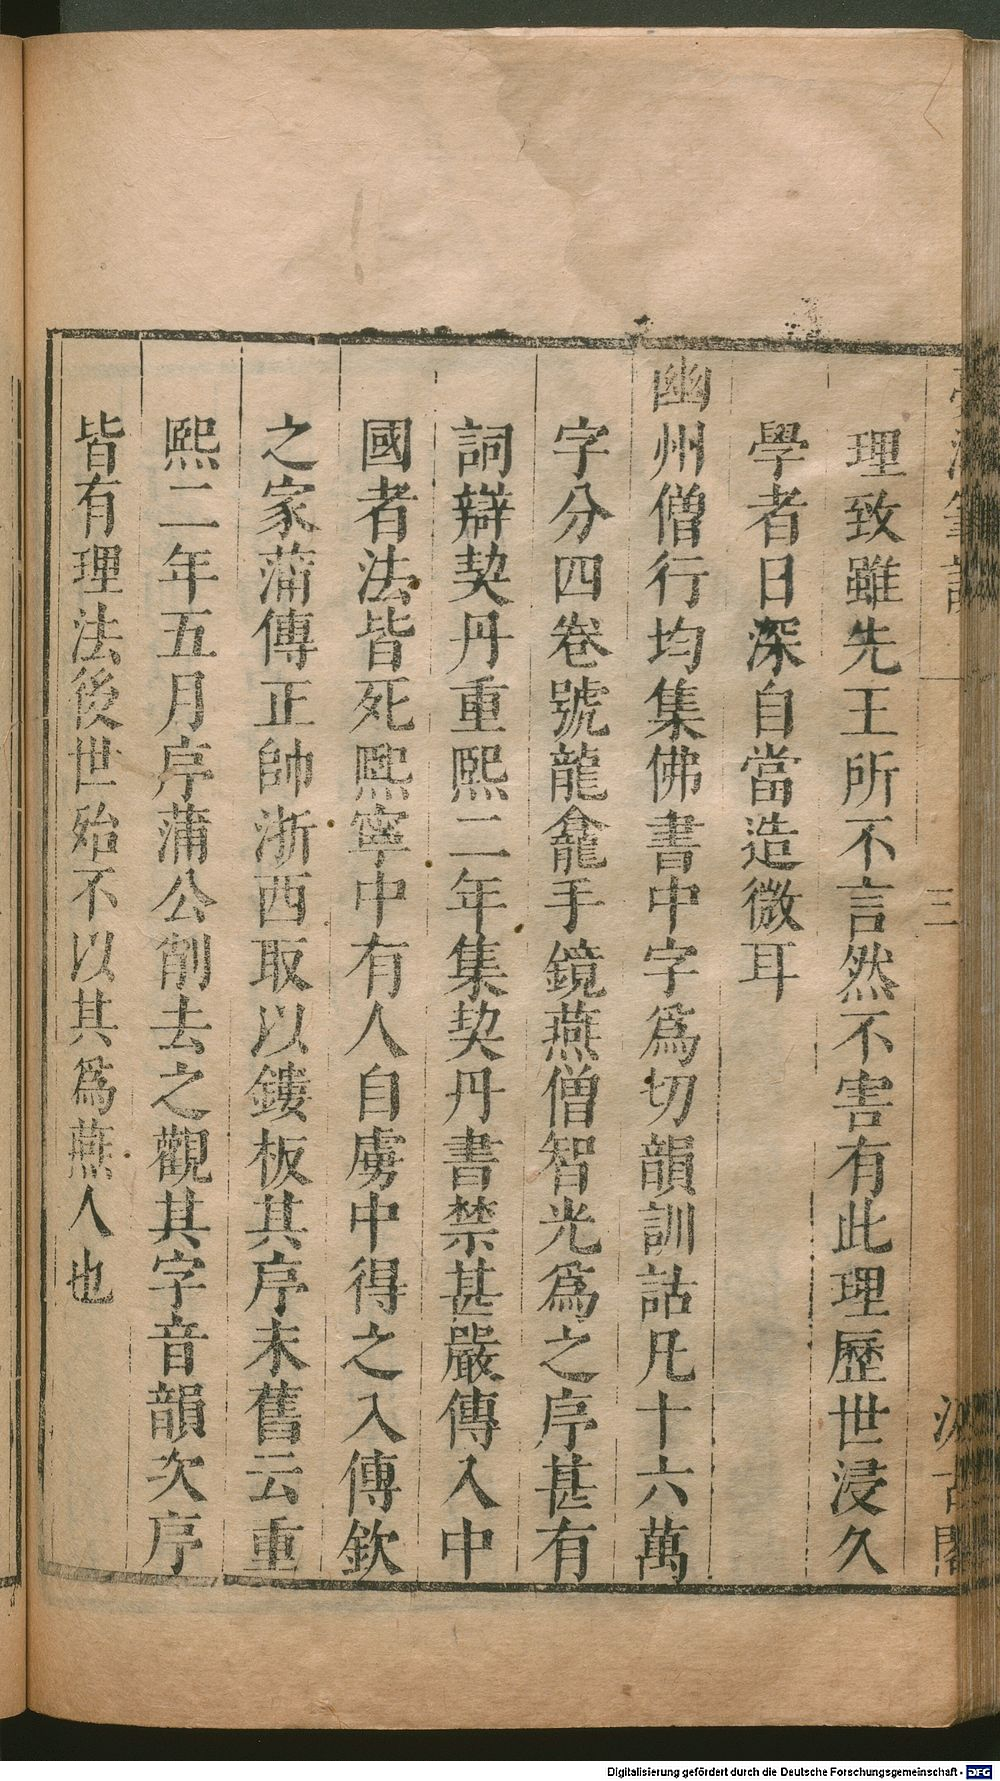 三
理致雖先王所不言然不害有此理歷世浸久
學者日深自當造微耳
幽州僧行均集佛書中字爲切韻訓詁凡十六萬
字分四卷號龍龕手鏡燕僧智光爲之序甚有
詞辯契丹重熙二年集契丹書禁甚嚴傳入中
國者法皆死熙寧中有人自虜中得之入傳欽
之家蒲傳正帥浙西取以鏤板其序末舊云重
熙二年五月序蒲公削去之觀其字音韻次序
皆有理法後世殆不以其爲燕人也
Digitalisierung gefördert durch die Deutsche Forschungsgemeinschaft - DFG